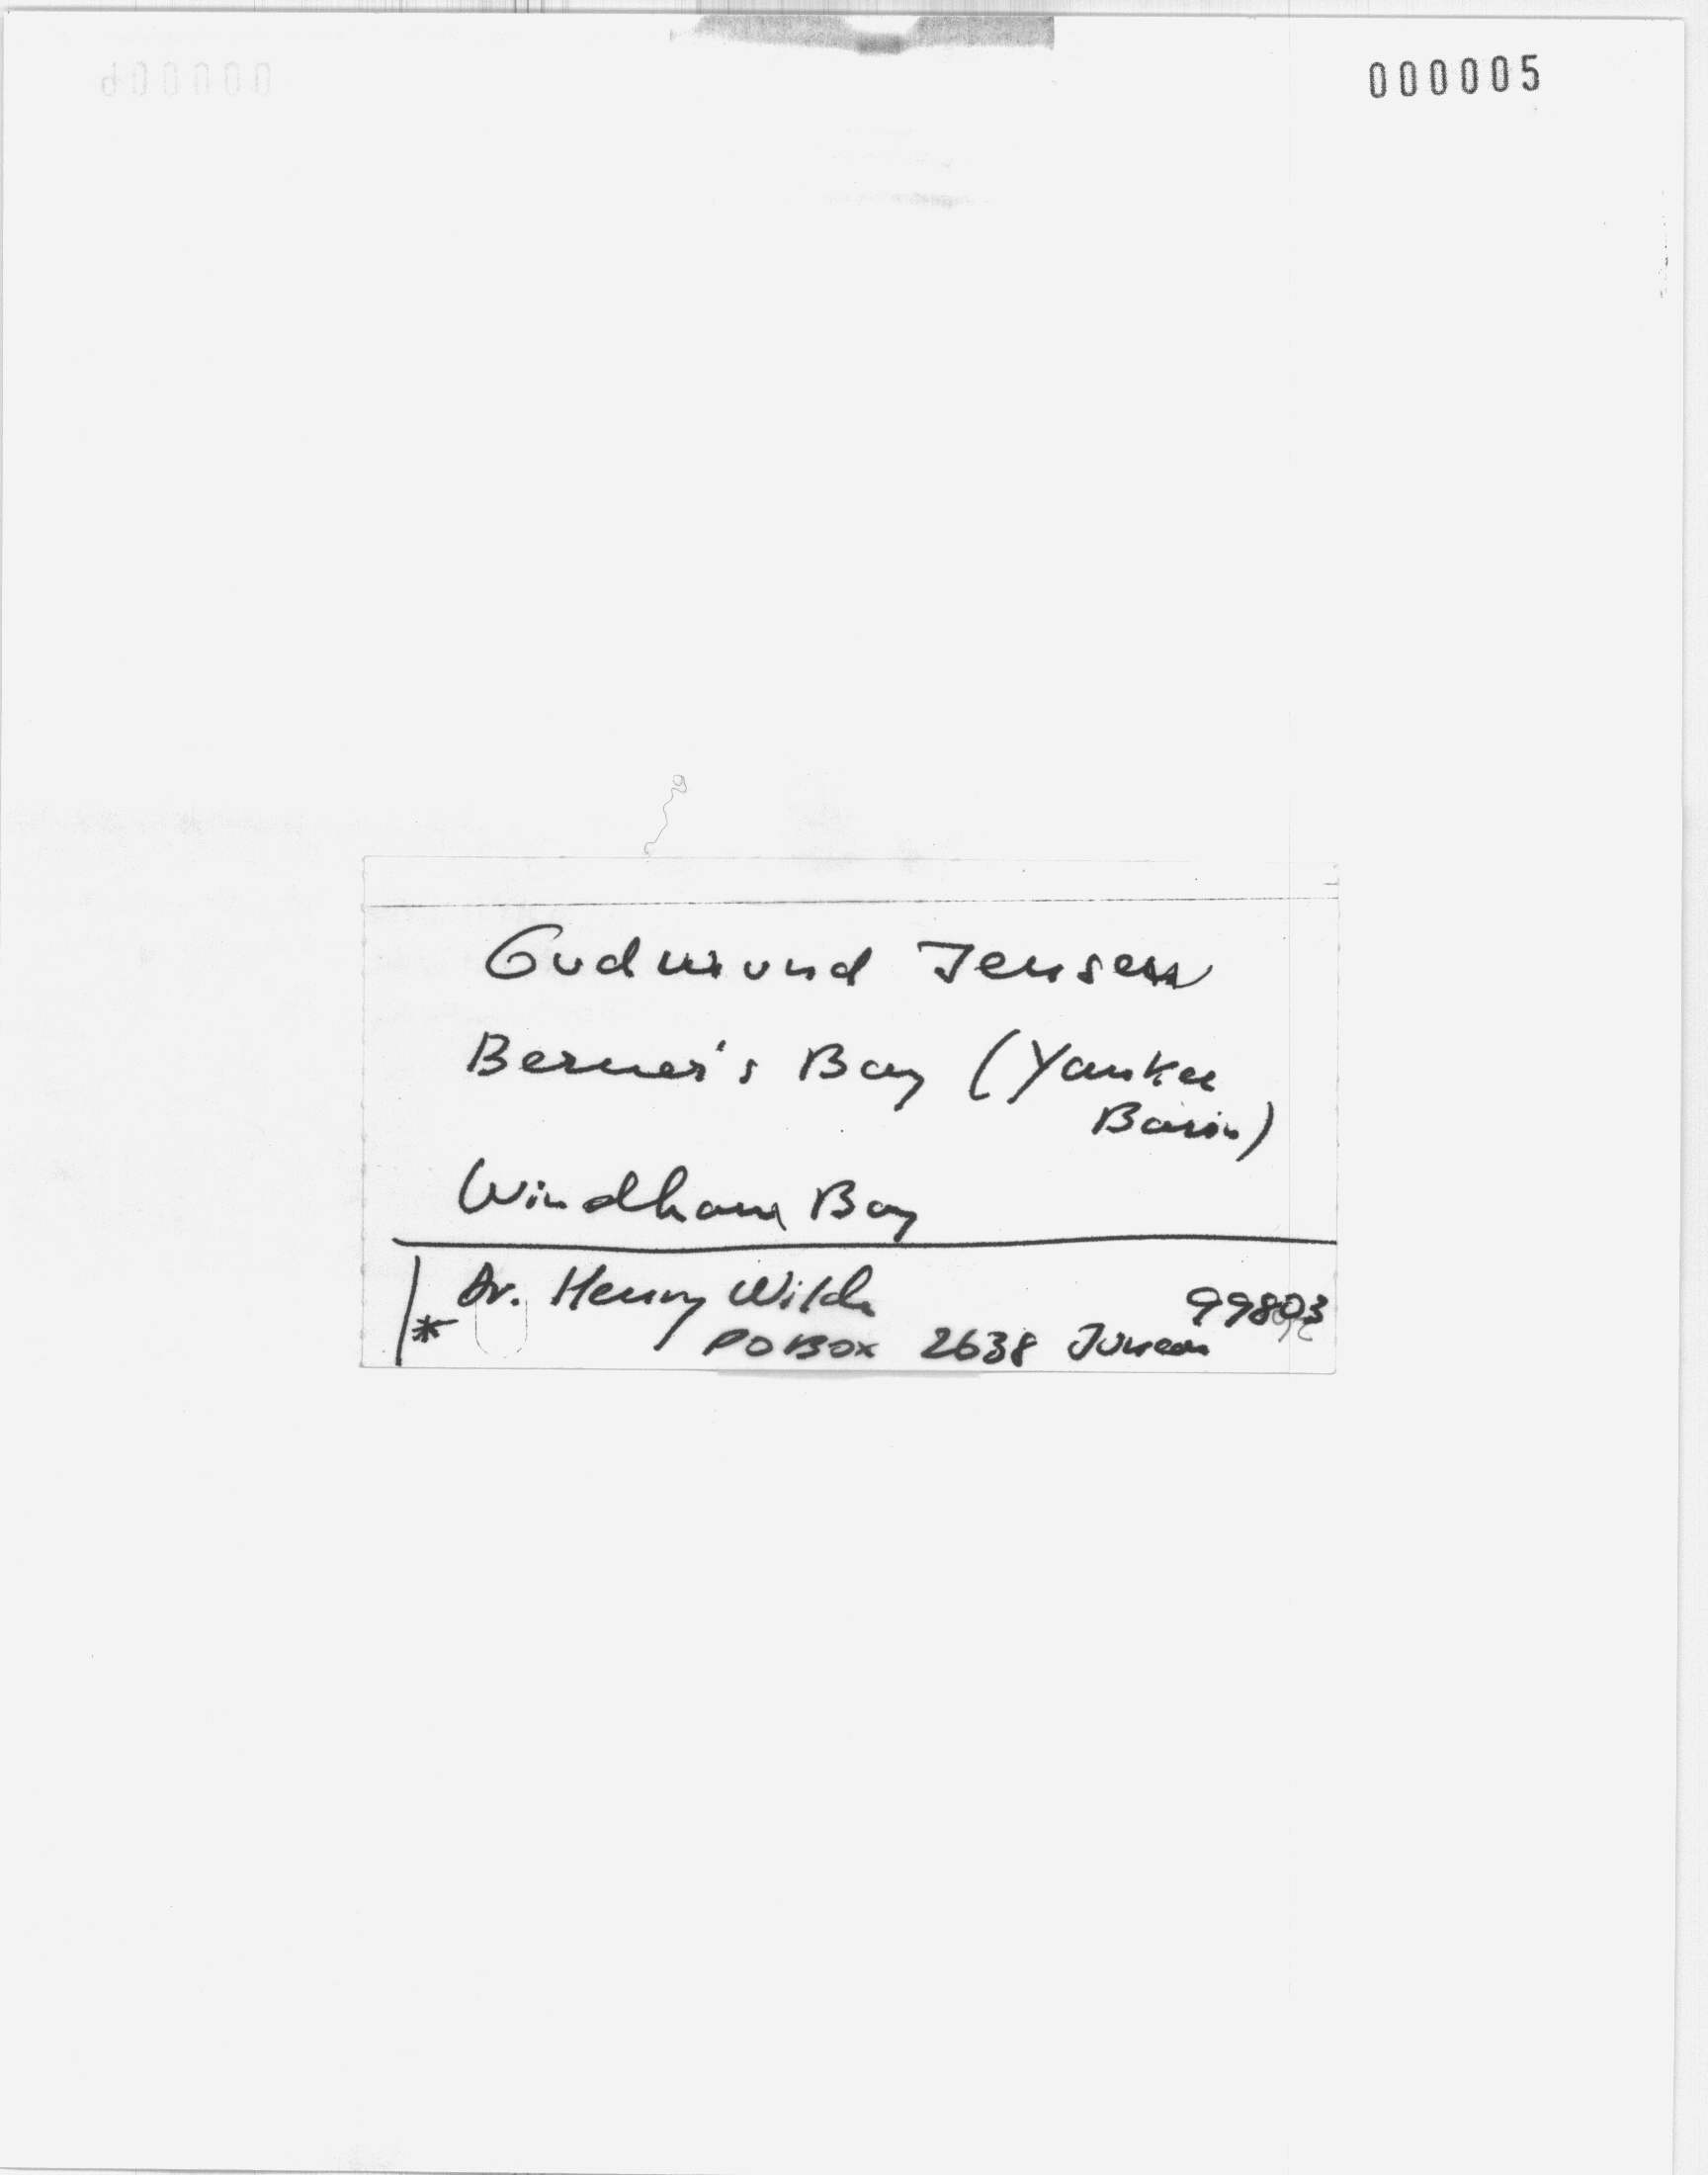 000005
Gudmund Jensen
Berner's Bay (Yankee
Basin)
Windham Bay
Dr. Henry Wilde 99803
* PO Box 2638 Juneau